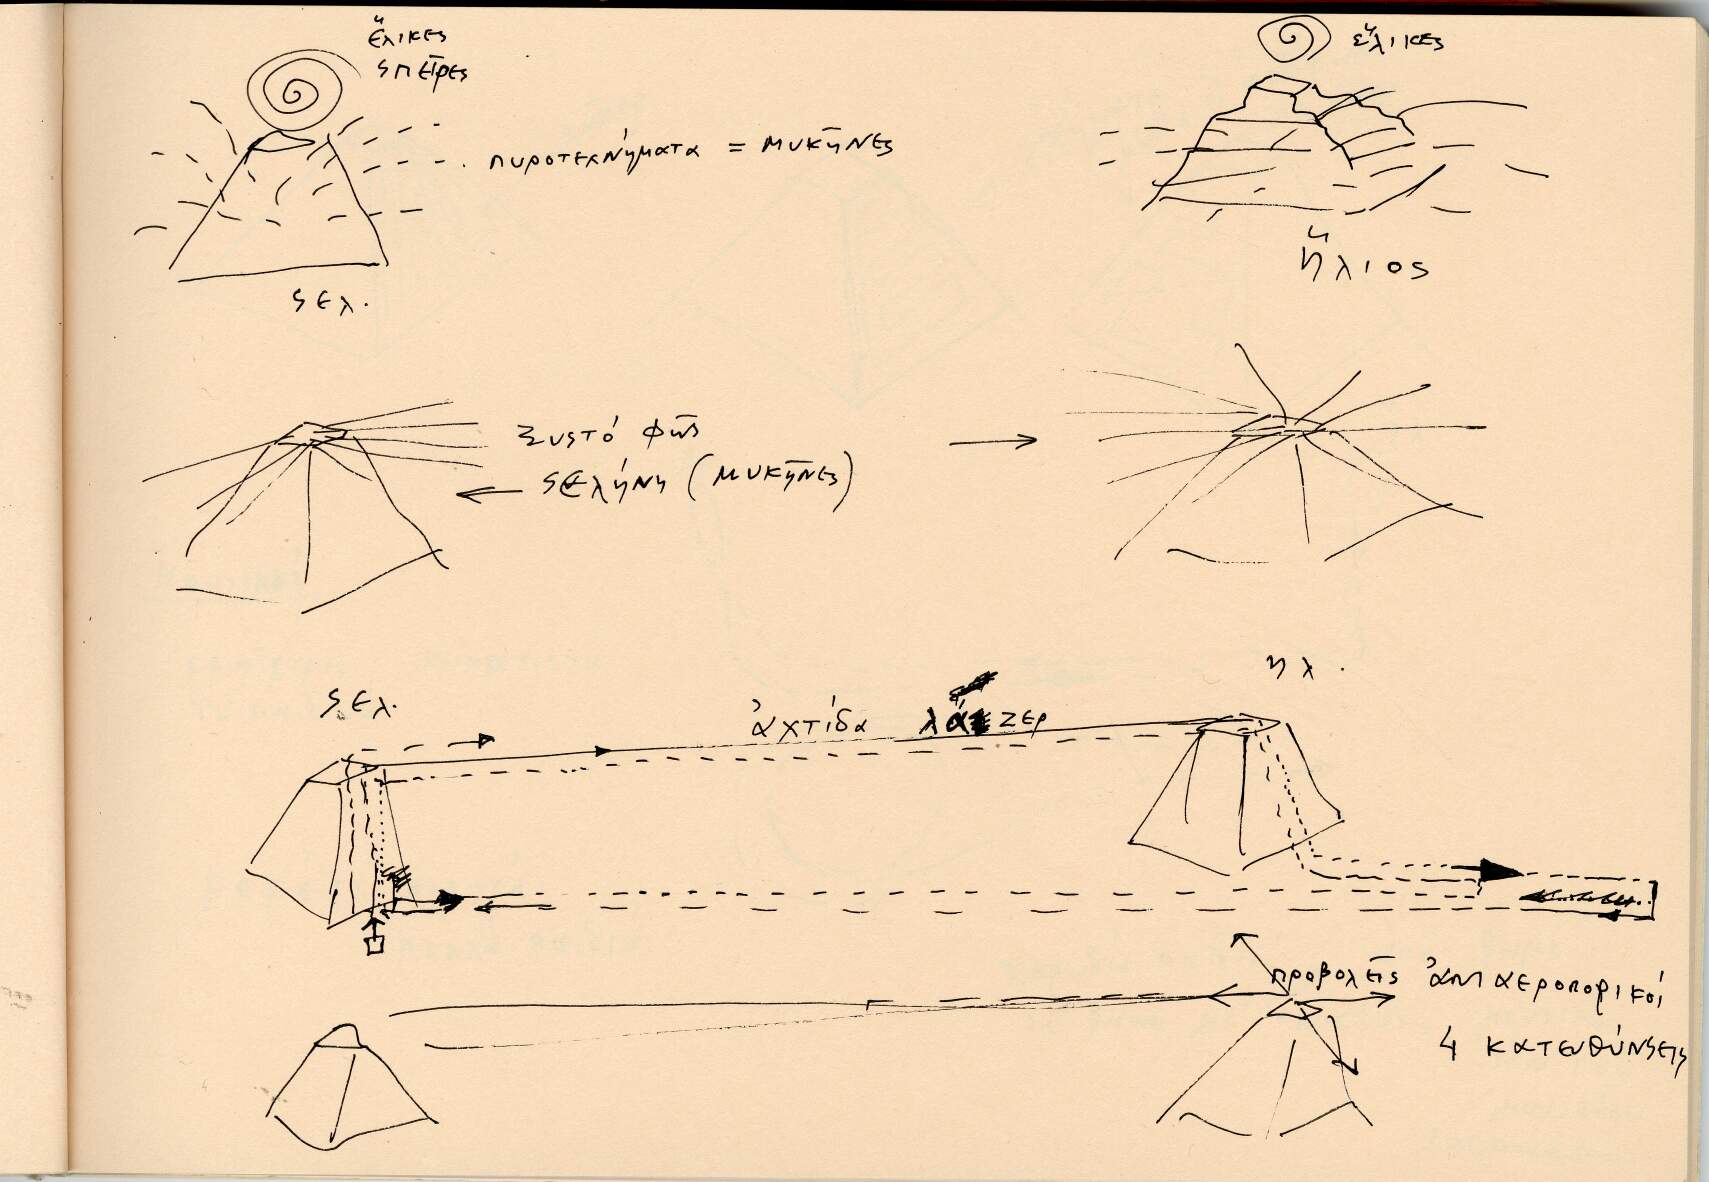 ἕλικες
σπεῖρες
ἕλικες
πυροτεχνήματα = Μυκῆνες
σελ.
ἥλιος
Ξυστό φῶς
σελήνη (Μυκῆνες)
σελ.
ηλ.
ἀχτίδα λάζερ
προβολεῖς ἀντιαεροπορικοί
4 κατευθύνσεις